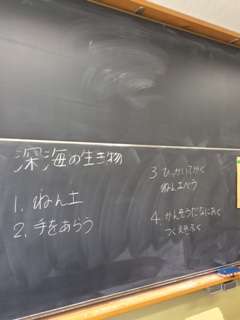 深海の生き物
1. ねん土
2. 手をあらう
3 ひっかいてかく
ねん土べら
4. かんそうだなにおく
つくえをふく